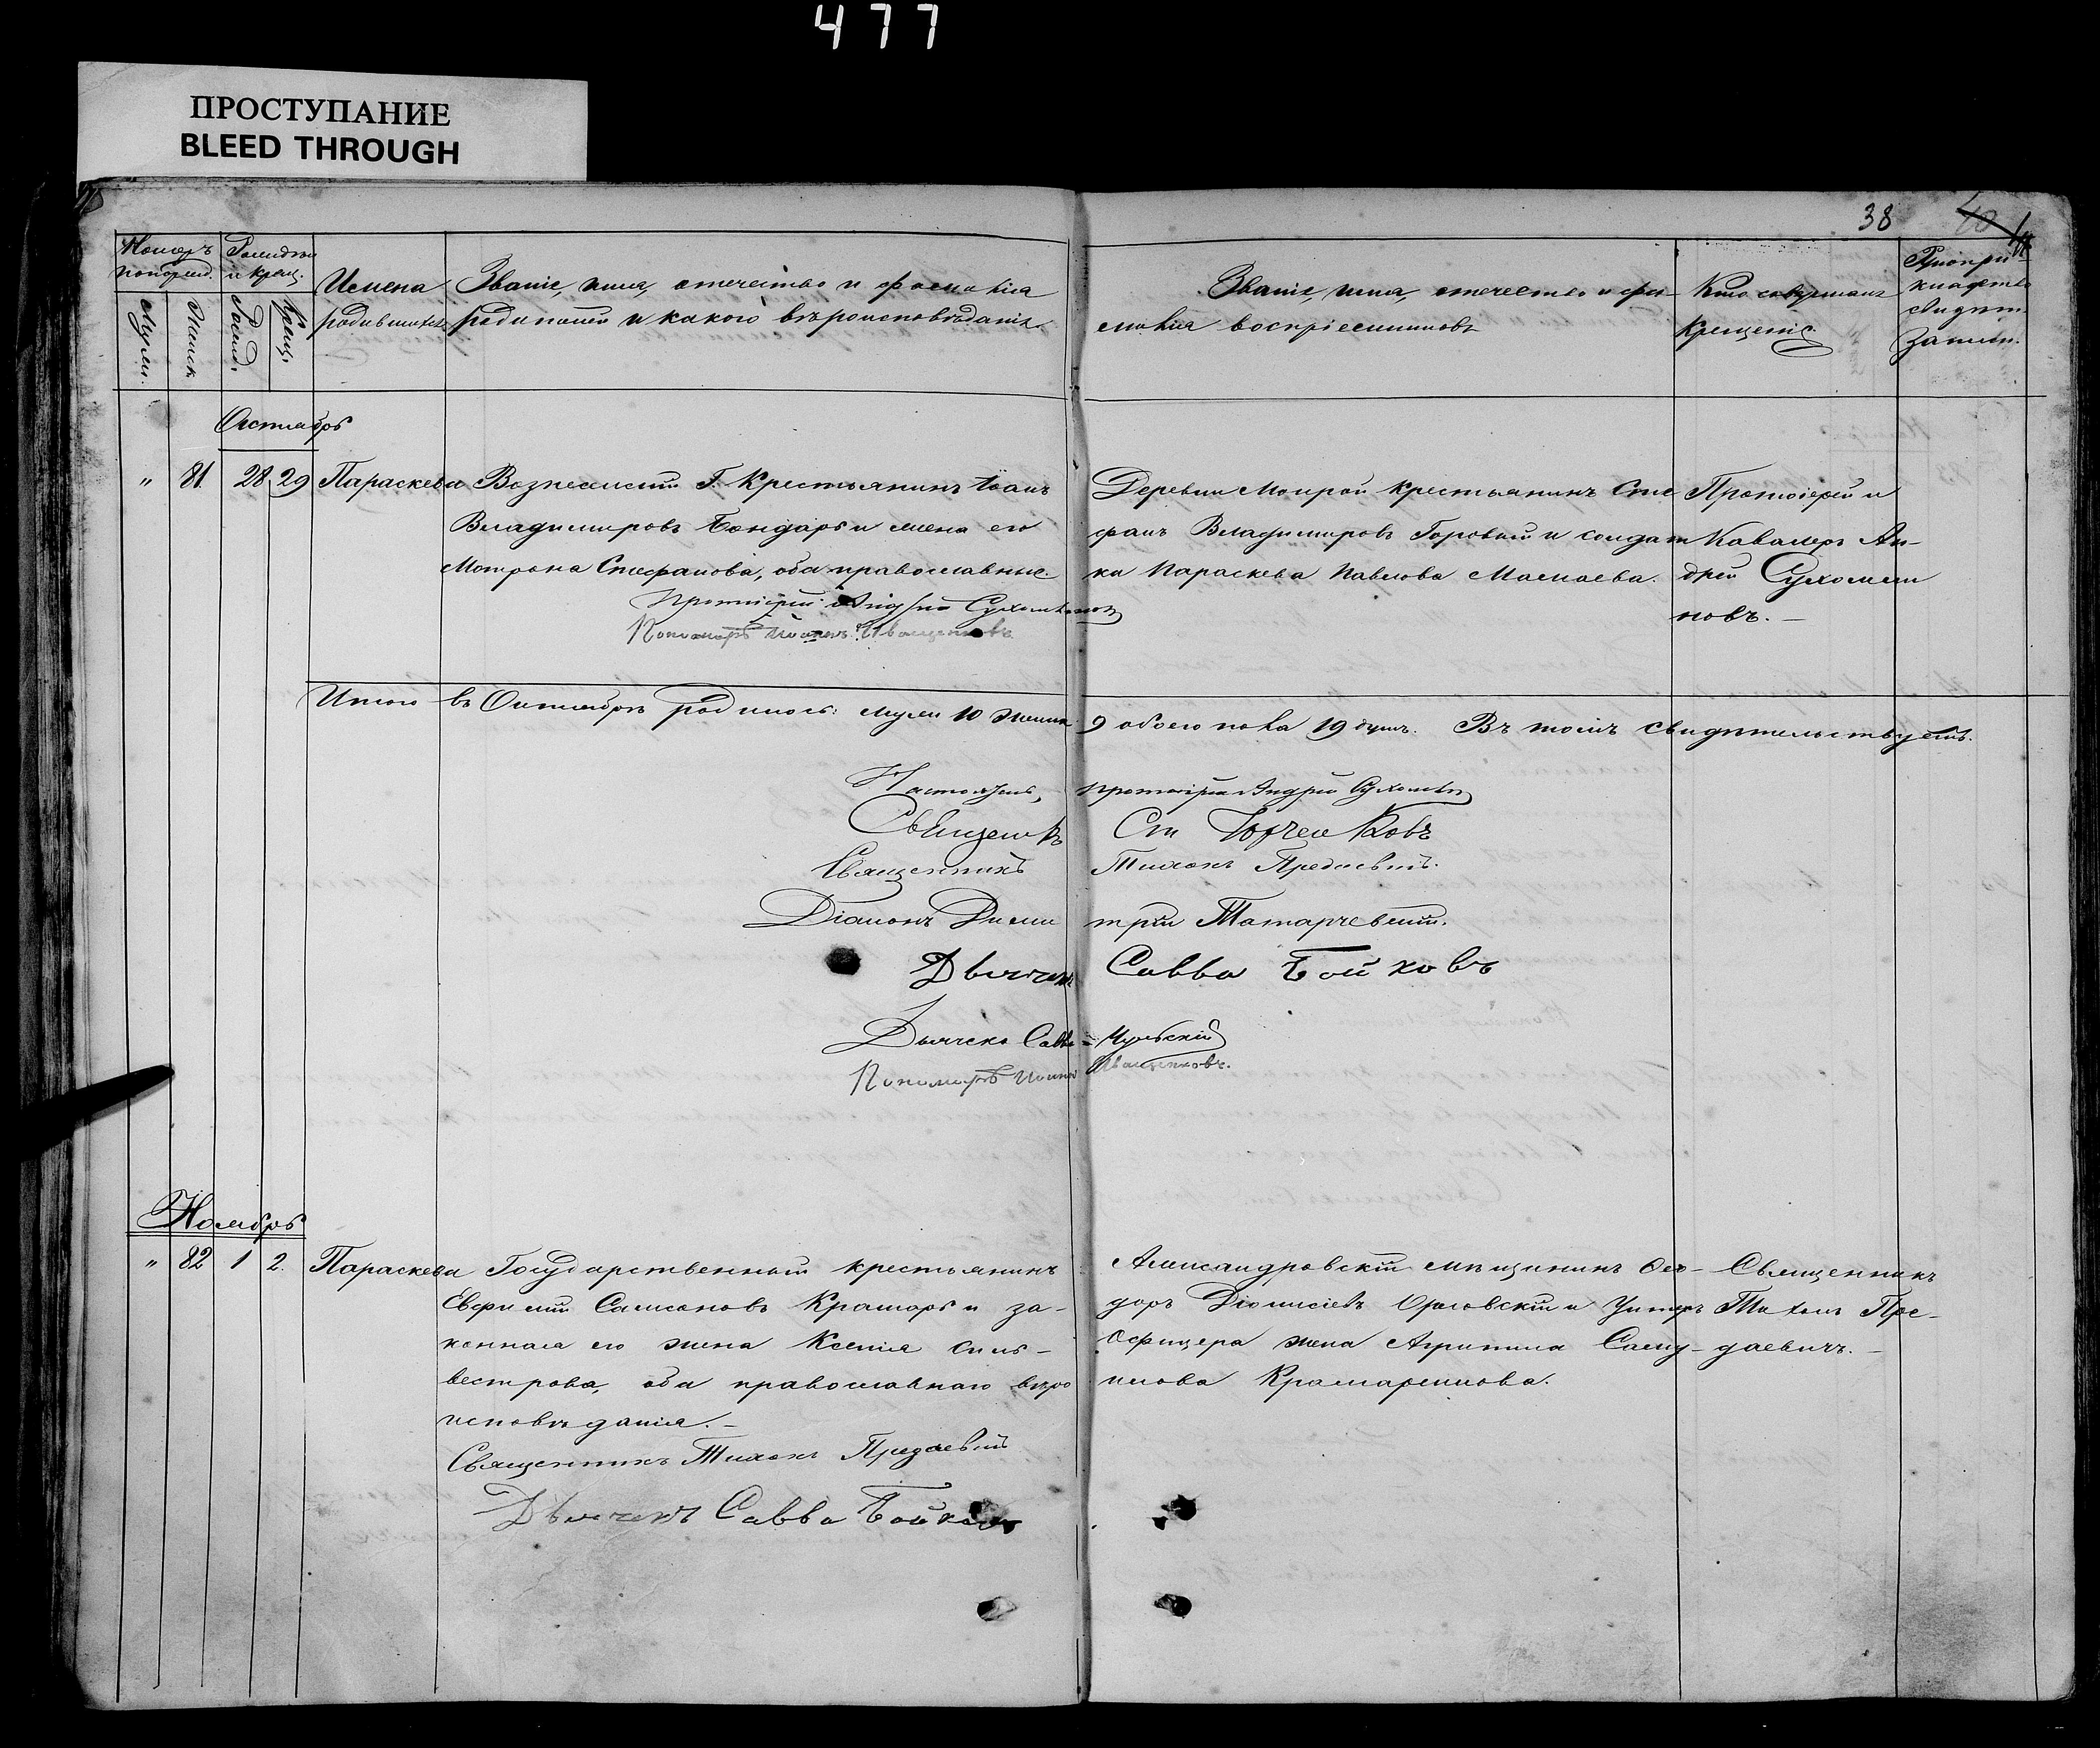 477
ПРОСТУПАНИЕ
BLEED THROUGH
38
Номеръ
Рожден.
и крещ.
Имена
родившихся
Званіе, имя, отчество и фамилія
родителей и какого вѣроисповѣданія.
Званіе, имя, отчество и фа-
милія воспріемниковъ
Кто совершалъ
крещеніе
Октябрь
" 81. 28 29 Параскева
Вознесенск. Г. Крестьянинъ Іоанъ
Владимировъ Бондарь и жена его
Мотрона Стефанова, оба православные.
Протоіерей Андрей Сухомлиновъ
Пономарь Иоаннъ Иващенковъ
Деревни Мокрой крестьянинъ Сте
фанъ Владимировъ Горовый и солдат
ка Параскева Павлова
Протоіерей и
Кавалеръ Ан-
дрей Сухомли
новъ. —
Итого въ Октябрѣ родилось: муж. 10 женск. 9 обоего пола 19 душъ. Въ томъ свидѣтельствуемъ.
Настоятель, протоіерей Андрей Сухомлин
Священникъ
Священникъ Тихонъ Предаевичъ.
Діаконъ Дими трій Татарчевскій.
Дьячекъ Савва Бойковъ
Дьячекъ Савва
Пономарь Иоаннъ Иващенковъ.
Ноябрь
" 82 1 2. Параскева
Государственный крестьянинъ
Евфимій Самсоновъ Крамарь и за-
конная его жена Ксенія Силь-
вестрова, оба православнаго вѣро
исповѣданія. —
Священникъ Тихонъ Предаевичъ
Дьячекъ Савва Бойковъ
Александровскій мѣщанинъ Фео-
доръ Діонисіевъ Орловскій и Унтеръ
Офицера жена Агрипина Саму-
илова Крамаренкова.
Священникъ
Тихонъ Пре-
даевичъ. —